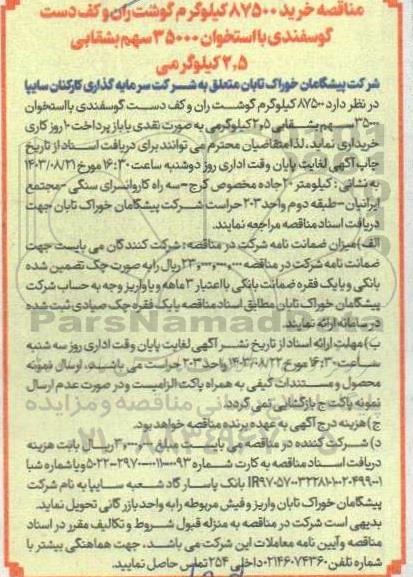 مناقصه خرید ۸۷۵۰۰ کیلوگرم گوشت ران و کف دست
گوسفندی با استخوان ۳۵۰۰۰ سهم بشقابی
۲,۵ کیلوگرمی
شرکت پیشگامان خوراک تابان متعلق به شرکت سرمایه گذاری کارکنان سایپا
در نظر دارد ۸۷۵۰۰ کیلوگرم گوشت ران و کف دست گوسفندی با استخوان
۳۵۰۰۰ سهم بشقابی ۲,۵ کیلوگرمی به صورت نقدی یا باز پرداخت ۱۰ روز کاری
خریداری نماید، لذا متقاضیان محترم می توانند برای دریافت اسناد از تاریخ
چاپ آگهی لغایت پایان وقت اداری روز دوشنبه ساعت ۱۶:۳۰ مورخ ۱۴۰۳/۰۸/۲۱
به نشانی: کیلومتر ۲۰ جاده مخصوص کرج-سه راه کاروانسرای سنگی-مجتمع
ایرانیان-طبقه دوم واحد ۲۰۳ حراست شرکت پیشگامان خوراک تابان جهت
دریافت اسناد مناقصه مراجعه نمایند.
الف)میزان ضمانت نامه شرکت در مناقصه: شرکت کنندگان می بایست جهت
ضمانت نامه شرکت در مناقصه ۲۳,۰۰۰,۰۰۰,۰۰۰ ریال را به صورت چک تضمین شده
بانکی و یا یک فقره ضمانت بانکی با اعتبار ۳ ماهه و یا واریز وجه به حساب شرکت
پیشگامان خوراک تابان مطابق اسناد مناقصه یا یک فقره چک صیادی ثبت شده
در سامانه ارائه نمایند.
ب) مهلت ارائه اسناد از تاریخ نشر آگهی لغایت پایان وقت اداری روز سه شنبه
ساعت ۱۶:۳۰ مورخ ۱۴۰۳/۰۸/۲۲ واحد ۲۰۳ حراست می باشد، ارسال نمونه
محصول و مستندات کیفی به همراه پاکت الزامیست و در صورت عدم ارسال
نمونه پاکت ج بازگشایی نمی گردد.
ج)هزینه درج آگهی به عهده برنده مناقصه خواهد بود.
د) شرکت کننده در مناقصه می بایست مبلغ ۳,۰۰۰,۰۰۰ ریال بابت هزینه
دریافت اسناد مناقصه به کارت شماره و یا شماره شبا
بانک پاسارگاد شعبه سایپا به نام شرکت
پیشگامان خوراک تابان واریز و فیش مربوطه را به واحد بازرگانی تحویل نماید.
بدیهی است شرکت در مناقصه به منزله قبول شروط و تکالیف مقرر در اسناد
مناقصه و آیین نامه معاملات این شرکت می باشد، جهت هماهنگی بیشتر با
شماره تلفن ۰۲۱۴۶۰۷۴۳۶۰ داخلی ۲۵۴ تماس حاصل نمایید.
ParsNamadData